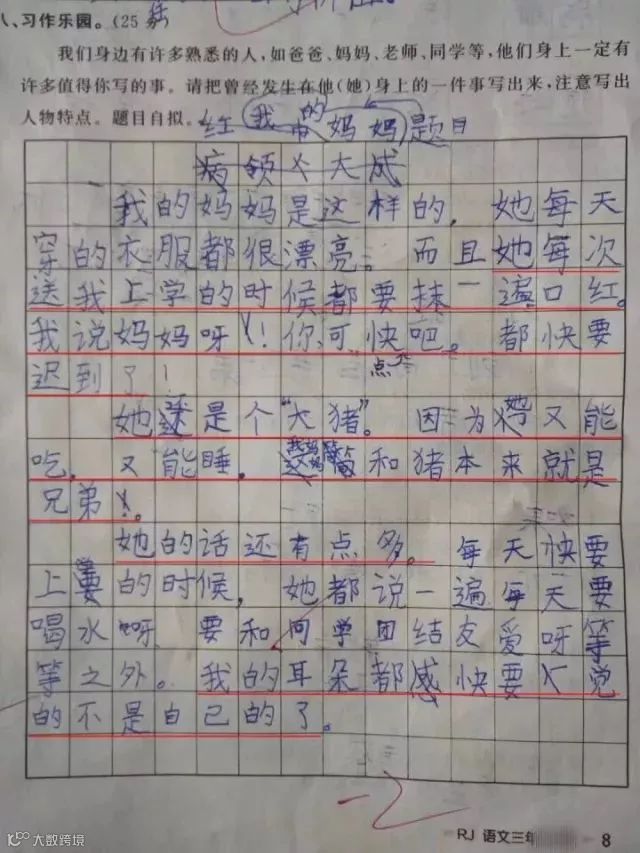 八、习作乐园。(25分)
我们身边有许多熟悉的人,如爸爸、妈妈、老师、同学等,他们身上一定有
许多值得你写的事。请把曾经发生在他(她)身上的一件事写出来,注意写出
人物特点。题目自拟。
我的妈妈 题目
我的妈妈是这样的,她每天
穿的衣服都很漂亮。而且她每次
送我上学的时候都要抹一遍口红。
我说妈妈呀!你可快点吧。都快要
迟到了!
她还是个“大猪”。因为她又能
吃,又能睡,我妈妈和猪本来就是
兄弟。
她的话还有点多。每天快要
上学的时候,她都说一遍每天要
喝水呀 要和同学团结友爱呀等
等之外。我的耳朵都感快要觉
的不是自己的了。
RJ 语文三年
8
大数跨境